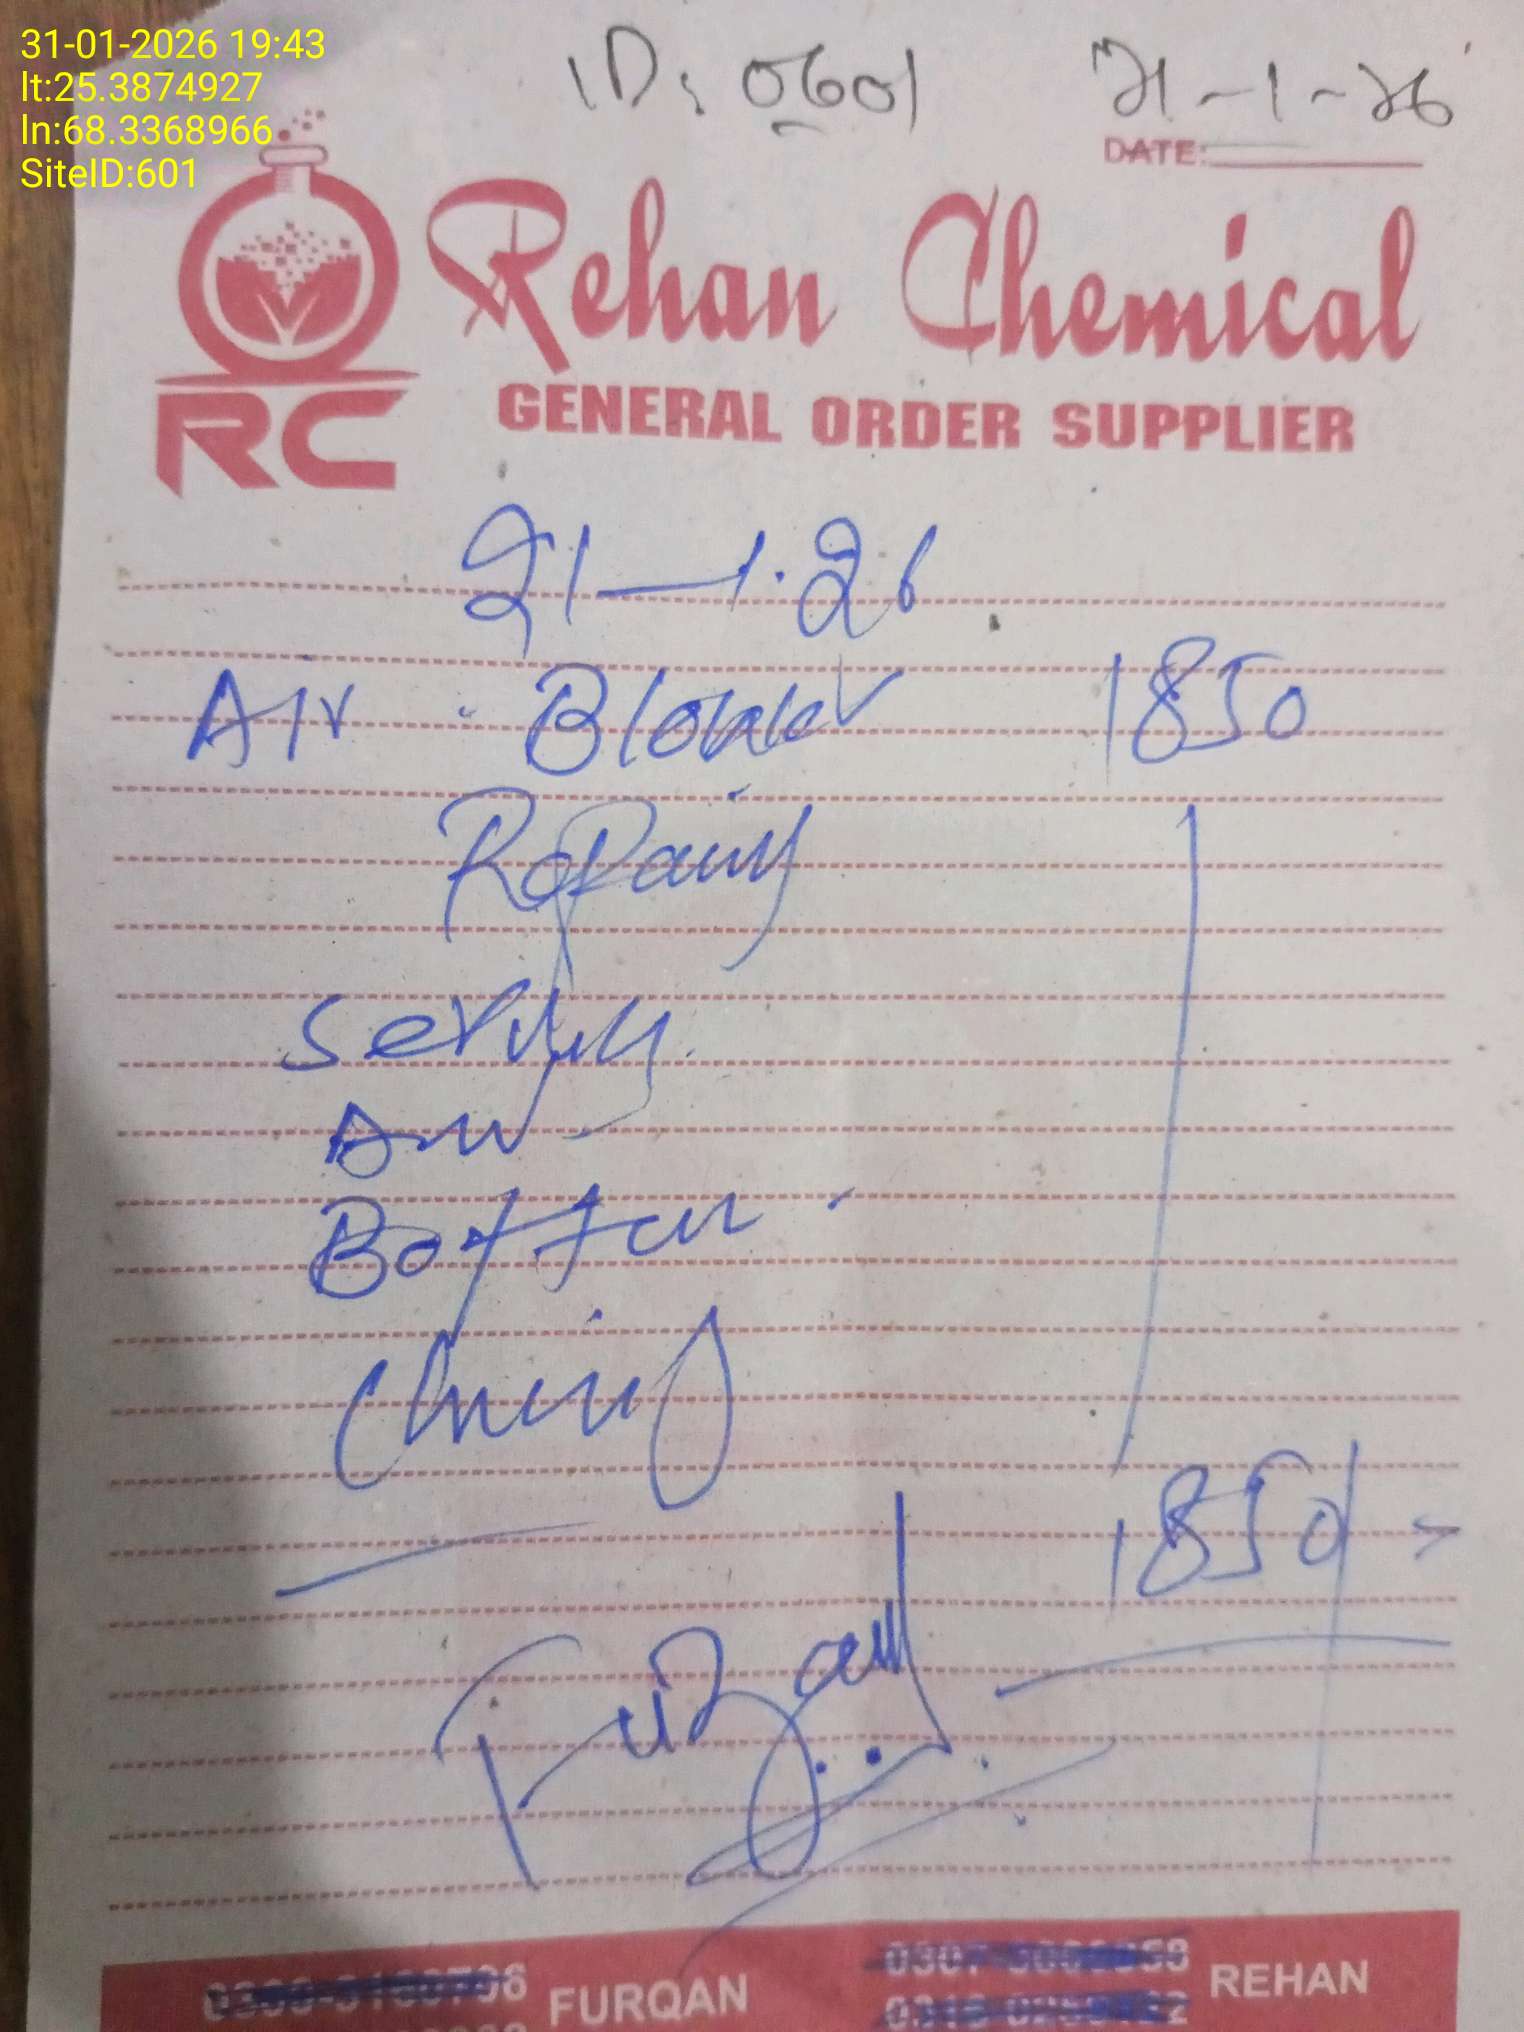 31-01-2026 19:43
lt:25.3874927
ln:68.3368966
SiteID:601
ID: 0601
21-1-26
DATE:
Rehan Chemical
RC
GENERAL ORDER SUPPLIER
21-1.26
Air Blower 1850
Repairing
Serving
And
Button
1850
FURQAN
REHAN